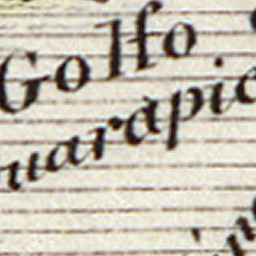 Golfo
uarapic
in